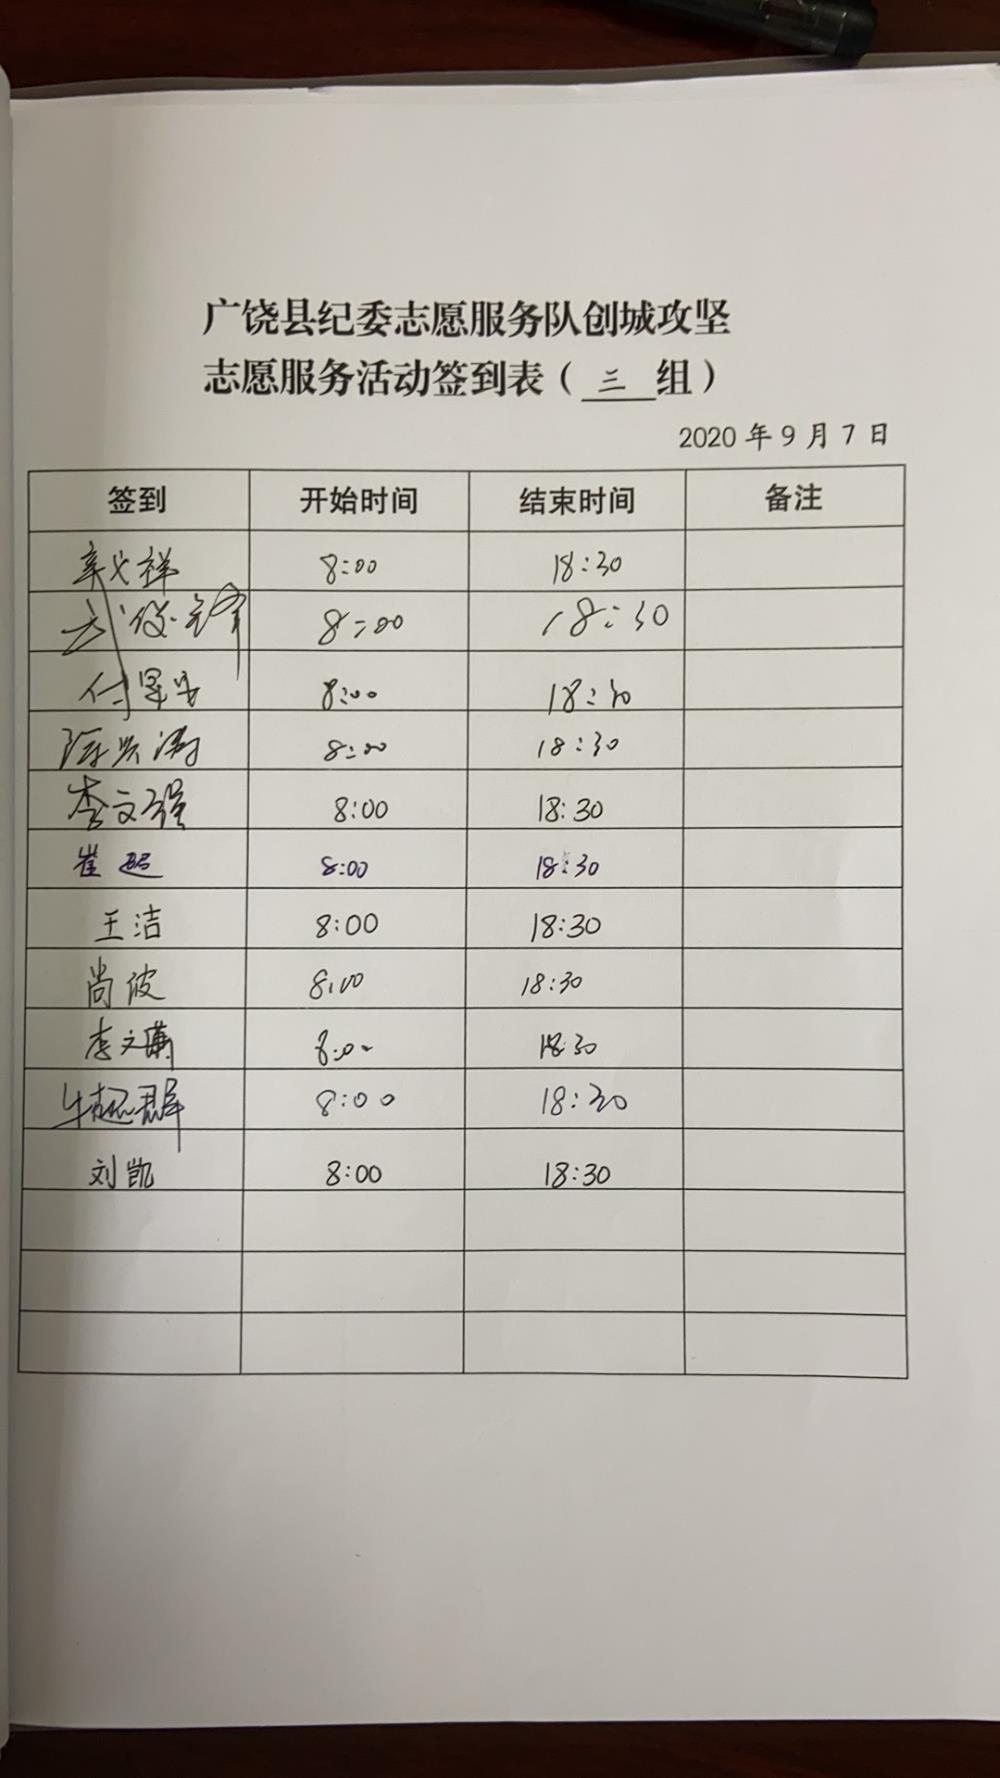 广饶县纪委志愿服务队创城攻坚
志愿服务活动签到表（三组）
2020年9月7日
签到 开始时间 结束时间 备注
辛义祥 8:00 18:30
武俊锋 8:00 18:30
付 8:00 18:30
陈兴涛 8:00 18:30
李文强 8:00 18:30
崔超 8:00 18:30
王洁 8:00 18:30
尚波 8:00 18:30
李文 8:00 18:30
牛超群 8:00 18:30
刘凯 8:00 18:30